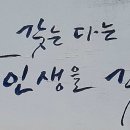 갖는 다는
인생을